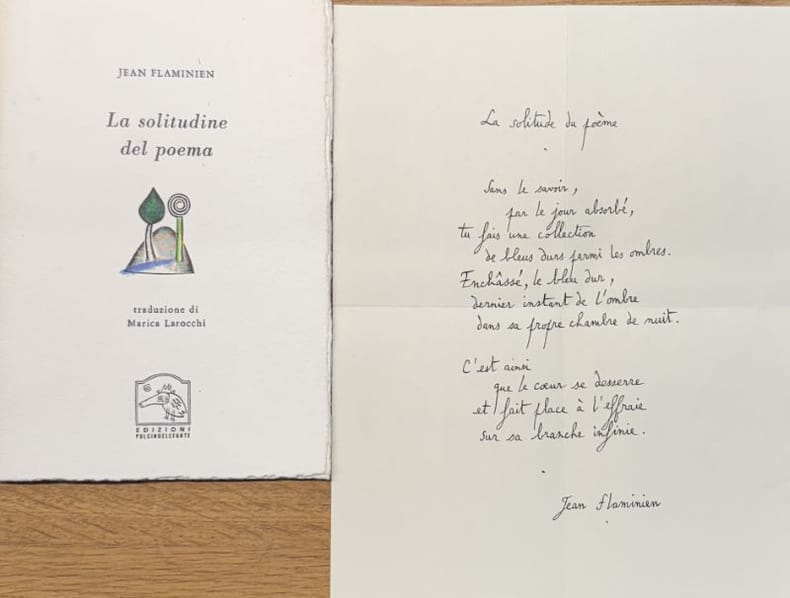 JEAN FLAMINIEN
La solitudine
del poema
traduzione di
Marica Larocchi
EDIZIONI
PULCINOELEFANTE
La solitude du poème
Sans le savoir,
par le jour absorbé,
tu fais une collection
de bleus durs parmi les ombres.
Enchâssé, le bleu dur,
dernier instant de l'ombre
dans sa propre chambre de nuit.
C'est ainsi
que le cœur se desserre
et fait place à l'effraie
sur sa branche infinie.
Jean Flaminien